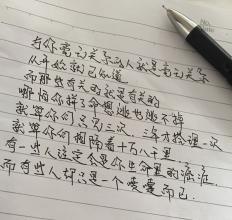 与你高三关系的人就是高三关系
从开始就已知道
而那些有关的就是有关的
哪怕你拼了命想逃也逃不掉
就算你们三见三次 三年才搭理一次
就算你们相隔着十万八千里
有一些人注定会是你生命里的涤淮
而有些人却只是一个喽喽而已.